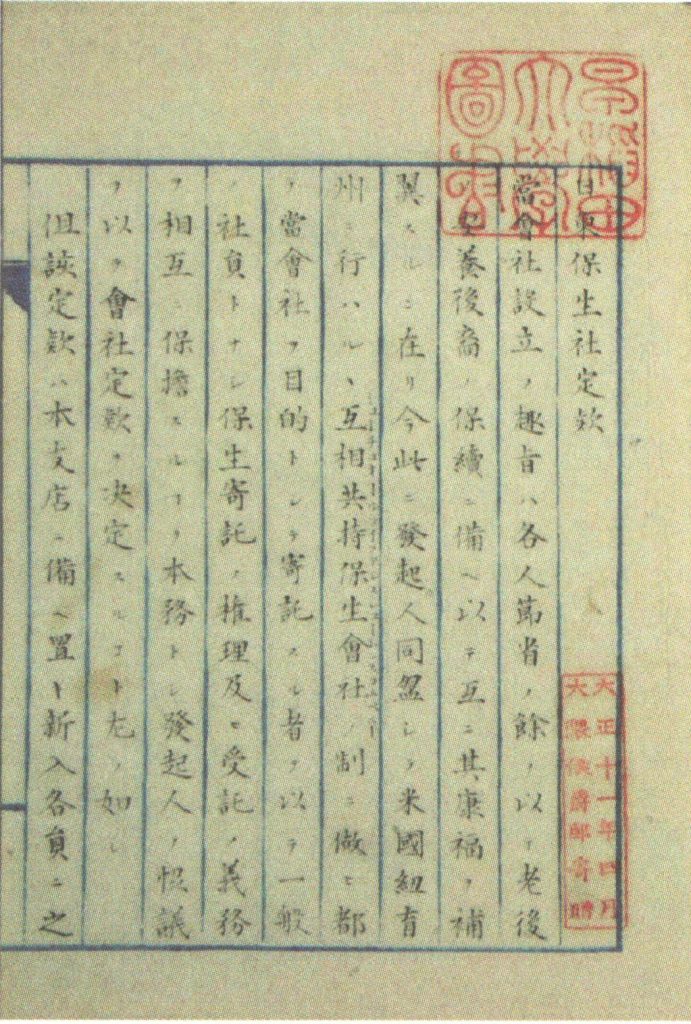 日東保生社定欵
當會社設立ノ趣旨ハ各人節省ノ餘ヲ以テ老後
ノ安養後裔ノ保續ニ備ヘ以テ互ニ其康福ヲ補
翼スルニ在リ今此ニ發起人同盟シテ米國紐育
州ニ行ハルヽ互相共持保生會社ノ制ニ倣ヒ都
テ當會社ヲ目的トシテ寄託スル者ヲ以テ一般
ノ社員トナシ保生寄託ノ権理及ヒ受託ノ義務
ヲ相互ニ保擔スルヿヲ本務トシ發起人ノ恊議
ヲ以テ會社定欵ヲ決定スルコト左ノ如シ
但該定欵ハ本支店ニ備ヘ置キ新入各員ニ之
大正十一年四月
大隈侯爵邸寄贈
圖書